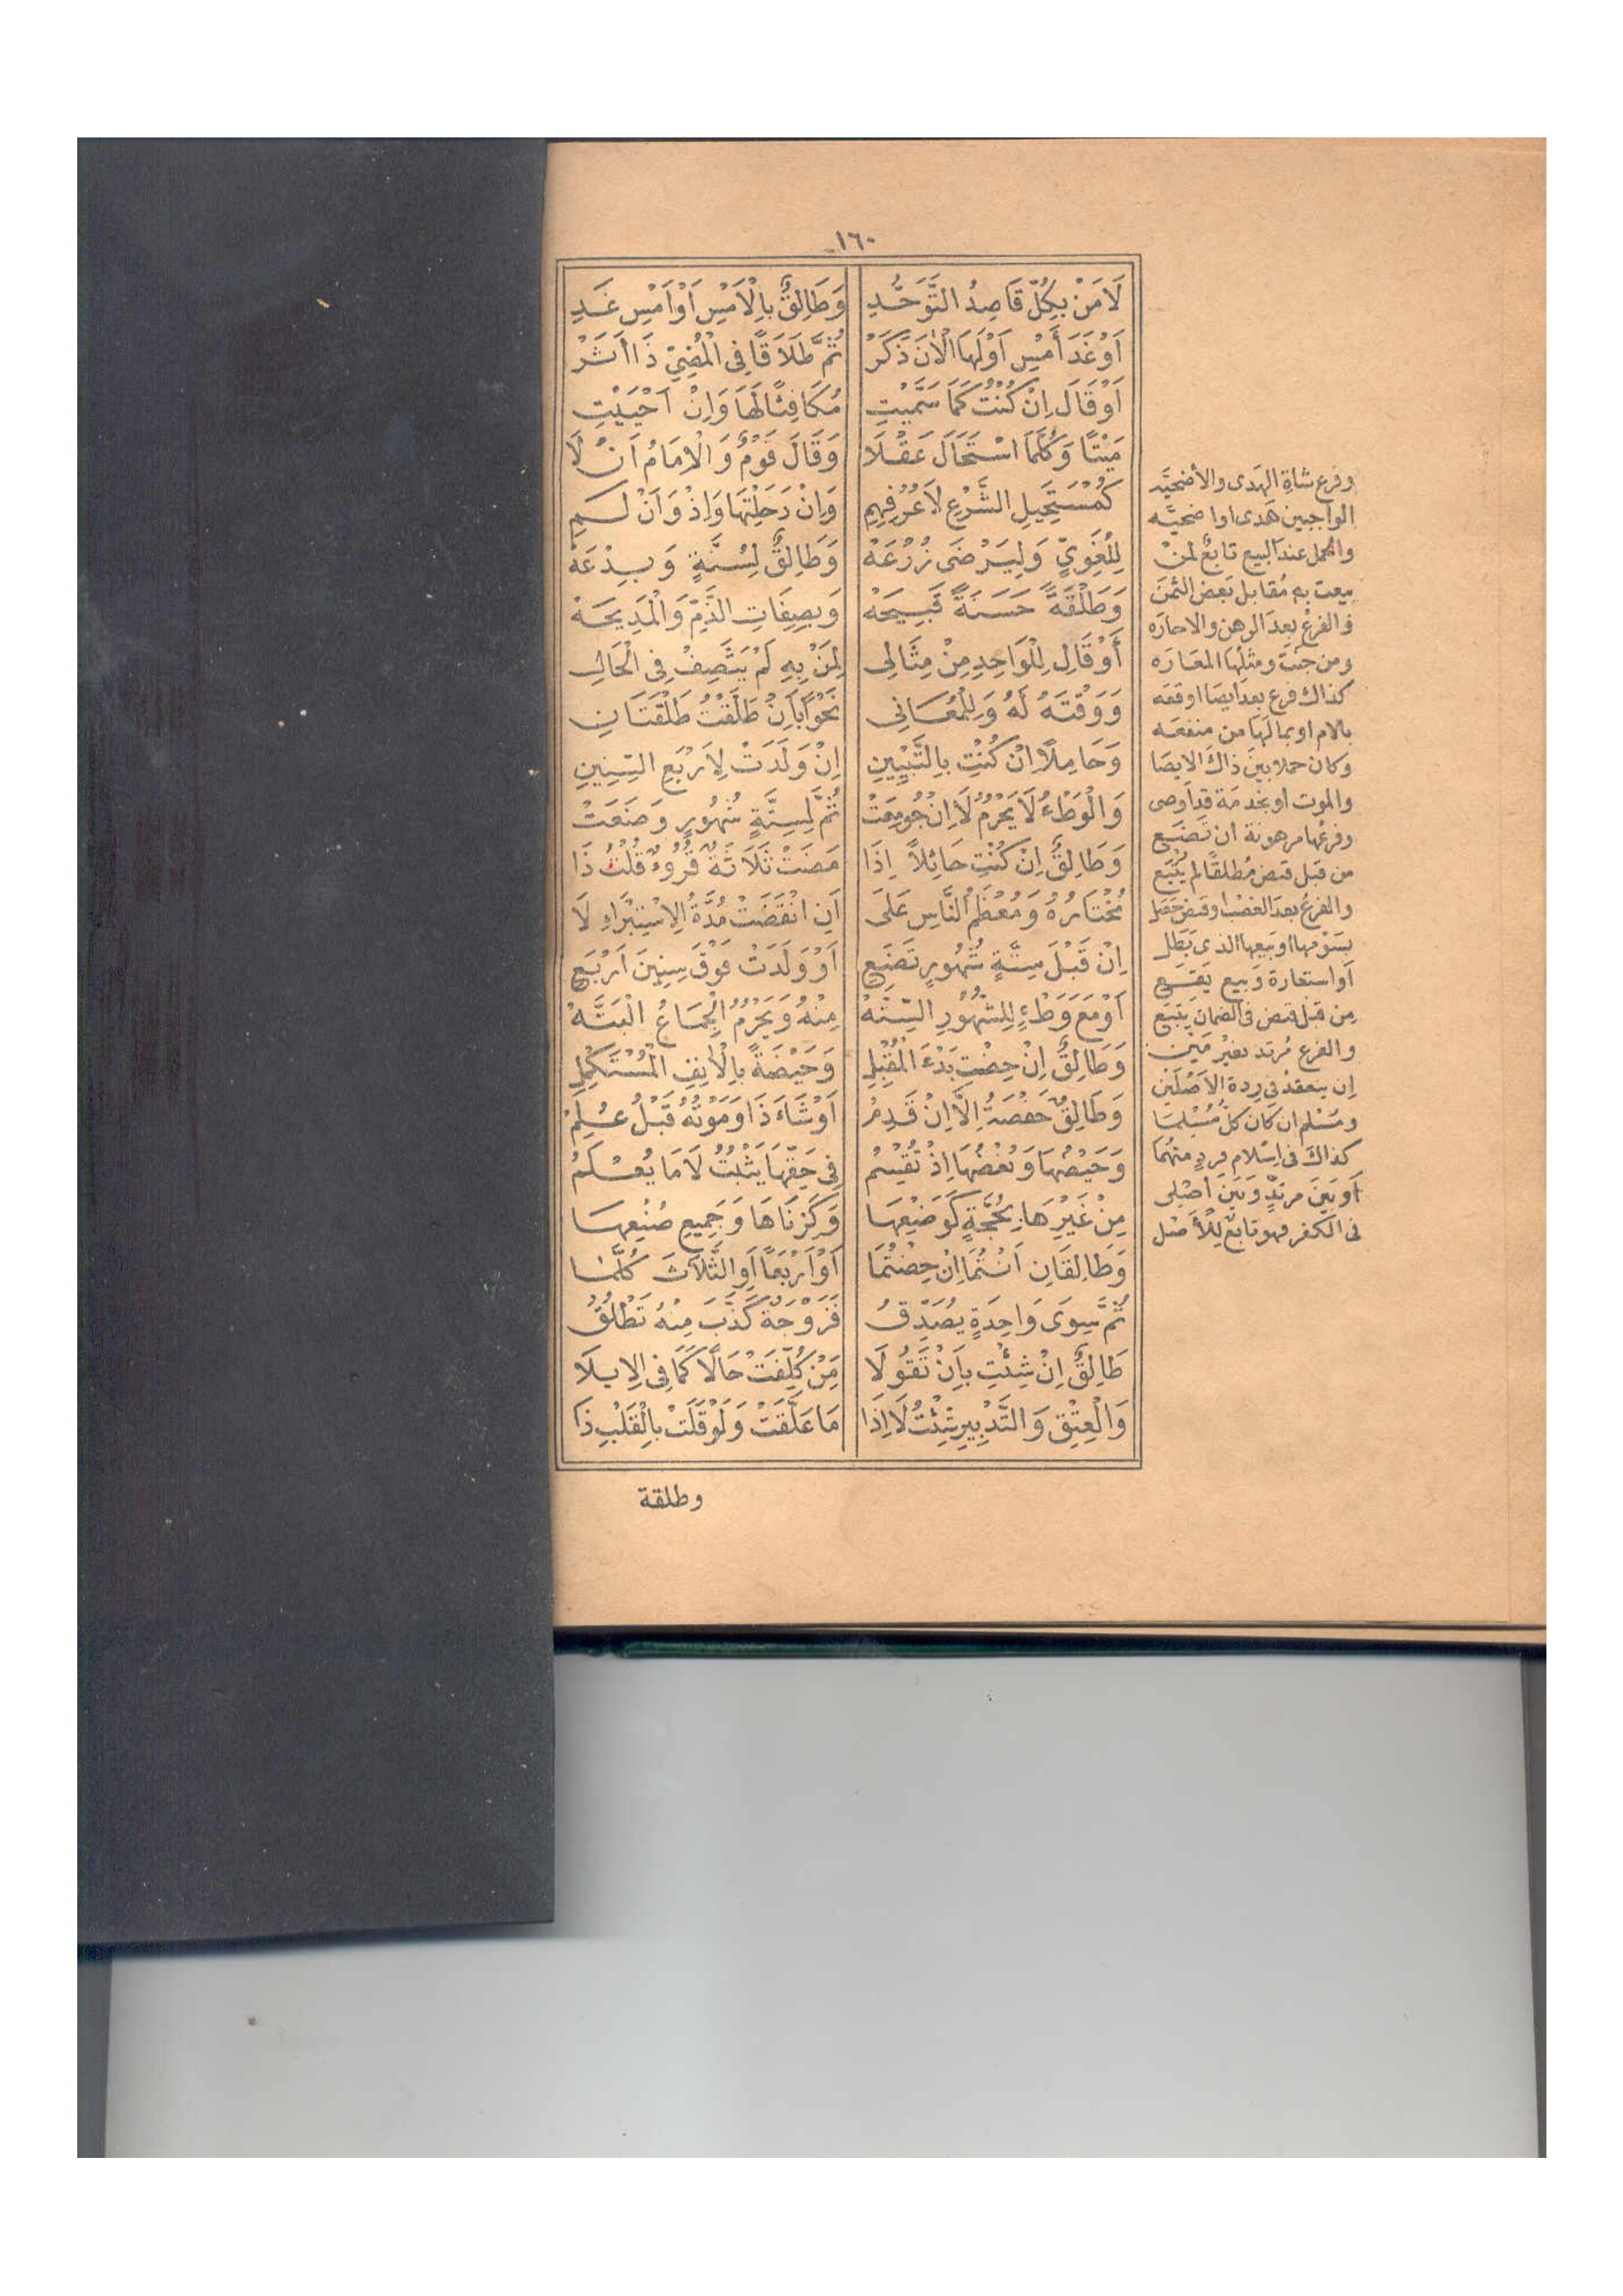 ١٦٠
لَا مَنْ بِكُلٍّ قَاصِدُ التَّوَحُّدِ وَطَالِقٌ بِالْأَمْسِ أَوْ أَمْسِ غَدِ
أَوْ غَدَ أَمْسِ أَوْ لَهَا الْآنَ ذَكَرْ ثُمَّ طَلَاقًا فِي الْمُضِيِّ ذَا أَثَرْ
أَوْ قَالَ إِنْ كُنْتُ كَمَا سَمَّيْتِ مُكَافِئًا لَهَا وَإِنْ أَحْيَيْتِ
مَيْتًا وَكُلَّمَا اسْتَحَالَ عَقْلَا وَقَالَ قَوْمٌ وَالْإِمَامُ أَنْ لَا
كَمُسْتَحِيلِ الشَّرْعِ لَا عُرْفِهِمِ وَإِنْ دَخَلْتِهَا وَإِذْ وَأَنْ لَمِ
لِلُّغَوِيِّ وَلِيَرْضَى زُرْعَهْ وَطَالِقٌ لِسُنَّةٍ وَبِدْعَهْ
وَطَلْقَةً حَسَنَةً قَبِيحَهْ وَبِصِفَاتِ الذَّمِّ وَالْمَدِيحَهْ
أَوْ قَالَ لِلْوَاحِدِ مِنْ مِثَالِي لِمَنْ بِهِ لَمْ يَتَّصِفْ فِي الْحَالِ
وَوَقْتَهُ لَهُ وَلِلْمُعَانِي نَحْوًا بِأَنْ طَلَّقْتُ طَلْقَتَانِ
وَحَامِلًا إِنْ كُنْتِ بِالتَّبْيِينِ إِنْ وَلَدَتْ لِأَرْبَعِ السِّنِينِ
وَالْوَطْءُ لَا يَحْرُمُ لَا إِنْ جُومِعَتْ ثُمَّ لِسِتَّةِ شُهُورٍ وَضَعَتْ
وَطَالِقٌ إِنْ كُنْتِ حَائِلًا إِذَا مَضَتْ ثَلَاثَةٌ قُرُوءٌ قُلْتُ ذَا
مُخْتَارُهُ وَمُعْظَمُ النَّاسِ عَلَى أَنِ انْقَضَتْ مُدَّةُ الِاسْتِبْرَاءِ لَا
إِنْ قَبْلَ سِتَّةِ شُهُورٍ تَضَعِ أَوْ وَلَدَتْ فَوْقَ سِنِينَ أَرْبَعِ
أَوْ مَعَ وَطْءٍ لِلشُّهُورِ السِّتَّهْ مِنْهُ وَيَحْرُمُ الْجِمَاعُ الْبَتَّهْ
وَطَالِقٌ إِنْ حِضْتِ بَدْءَ الْمُقْبِلِ وَحَيْضَةً بِالْآنِفِ الْمُسْتَكْمِلِ
وَطَالِقٌ حَفْصَةُ إِلَّا إِنْ قَدِمْ أَوْ شَاءَ ذَا وَمَوْتُهُ قَبْلُ عُلِمْ
وَحَيْضُهَا وَبُغْضُهَا إِذْ تُقْسِمُ فِي حَقِّهَا يَثْبُتُ لَا مَا يُعْلَمُ
مِنْ غَيْرِهَا بِحُجَّةٍ كَوَضْعِهَا وَكَزِنَاهَا وَجَمِيعِ صُنْعِهَا
وَطَالِقَانِ أَنْتُمَا إِنْ حِضْتُمَا أَوْ أَرْبَعًا أَوِ الثَّلَاثَ كُلَّمَا
ثُمَّ سِوَى وَاحِدَةٍ يُصَدِّقُ فَزَوْجَةٌ كَذَّبَ مِنْهُ تَطْلُقُ
طَالِقٌ إِنْ شِئْتِ بِأَنْ تَقُولَا مَنْ كُلِّفَتْ حَالًا كَمَا فِي الْإِيلَا
وَالْعِتْقِ وَالتَّدْبِيرِ شِئْتُ لَا إِذَا مَا عَلَّقَتْ وَلَوْ قَلَتْ بِالْقَلْبِ ذَا
وطلقة
وفرع شاة الهدى والأضحيّه
الواجبين هدى او اضحيّه
والحمل عند البيع تابع لمن
بيعت به مقابل بعض الثمن
والفرع بعد الرهن والاجاره
ومن جنت ومثلها المعاره
كذاك فرع بعد ايصا اوقعه
بالام او بما لها من منفعه
وكان حملا بين ذاك الايصا
والموت او بخدمة قد اوصى
وفرعها مرهونة ان تضع
من قبل قبض مطلقا لم يتبع
والفرع بعد الغصب او قبض حصل
بسومها او بيعها الذى بطل
أو استعارة وبيع يقع
من قبل قبض فى الضمان يتبع
والفرع مرتد بغير مين
إن ينعقد فى ردة الأصلين
ومسلم ان كان كلّ مسلما
كذاك فى اسلام فرد منهما
أو بين مرتدّ وبين أصلى
فى الكفر فهو تابع للأصل